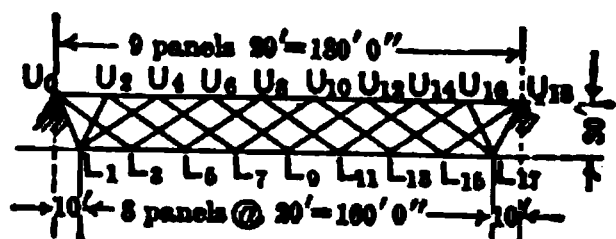 9 panels 20'=180' 0"
U₀ U₂ U₄ U₆ U₈ U₁₀ U₁₂ U₁₄ U₁₆ U₁₈
L₁ L₃ L₅ L₇ L₉ L₁₁ L₁₃ L₁₅ L₁₇
10' 8 panels @ 20'=160' 0" 10'